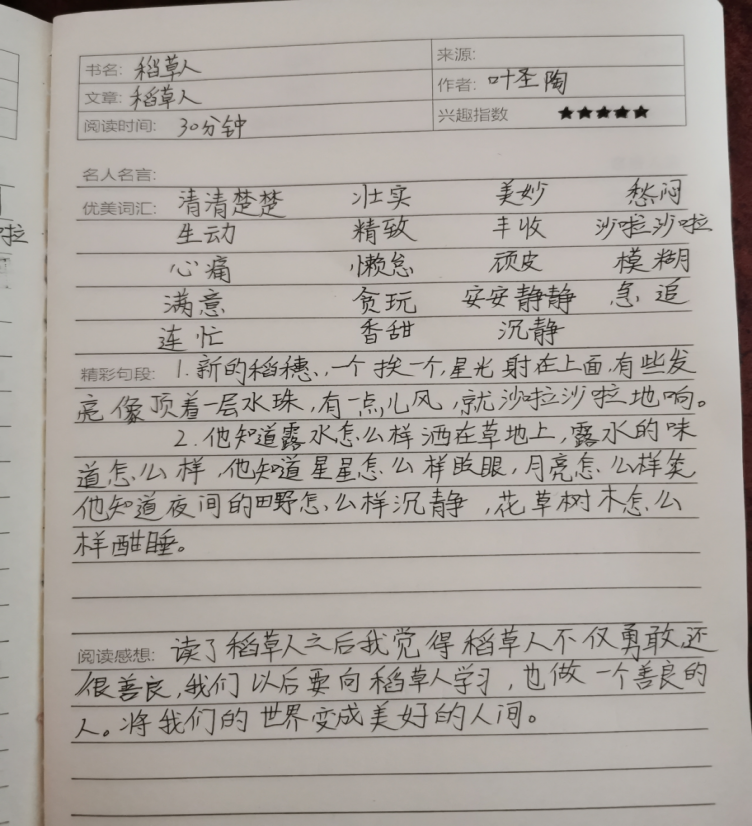 书名: 稻草人 来源:
文章: 稻草人 作者: 叶圣陶
阅读时间: 30分钟 兴趣指数 ★★★★★
名人名言:
优美词汇: 清清楚楚 壮实 美妙 愁闷
生动 精致 丰收 沙啦沙啦
心痛 懒怠 顽皮 模糊
满意 贪玩 安安静静 急追
连忙 香甜 沉静
精彩句段: 1.新的稻穗、一个挨一个,星光射在上面,有些发
亮,像顶着一层水珠,有一点儿风,就沙啦沙啦地响。
2.他知道露水怎么样洒在草地上,露水的味
道怎么样,他知道星星怎么样眨眼,月亮怎么样笑
他知道夜间的田野怎么样沉静,花草树木怎么
样酣睡。
阅读感想: 读了稻草人之后我觉得稻草人不仅勇敢还
很善良,我们以后要向稻草人学习,也做一个善良的
人。将我们的世界变成美好的人间。
啦